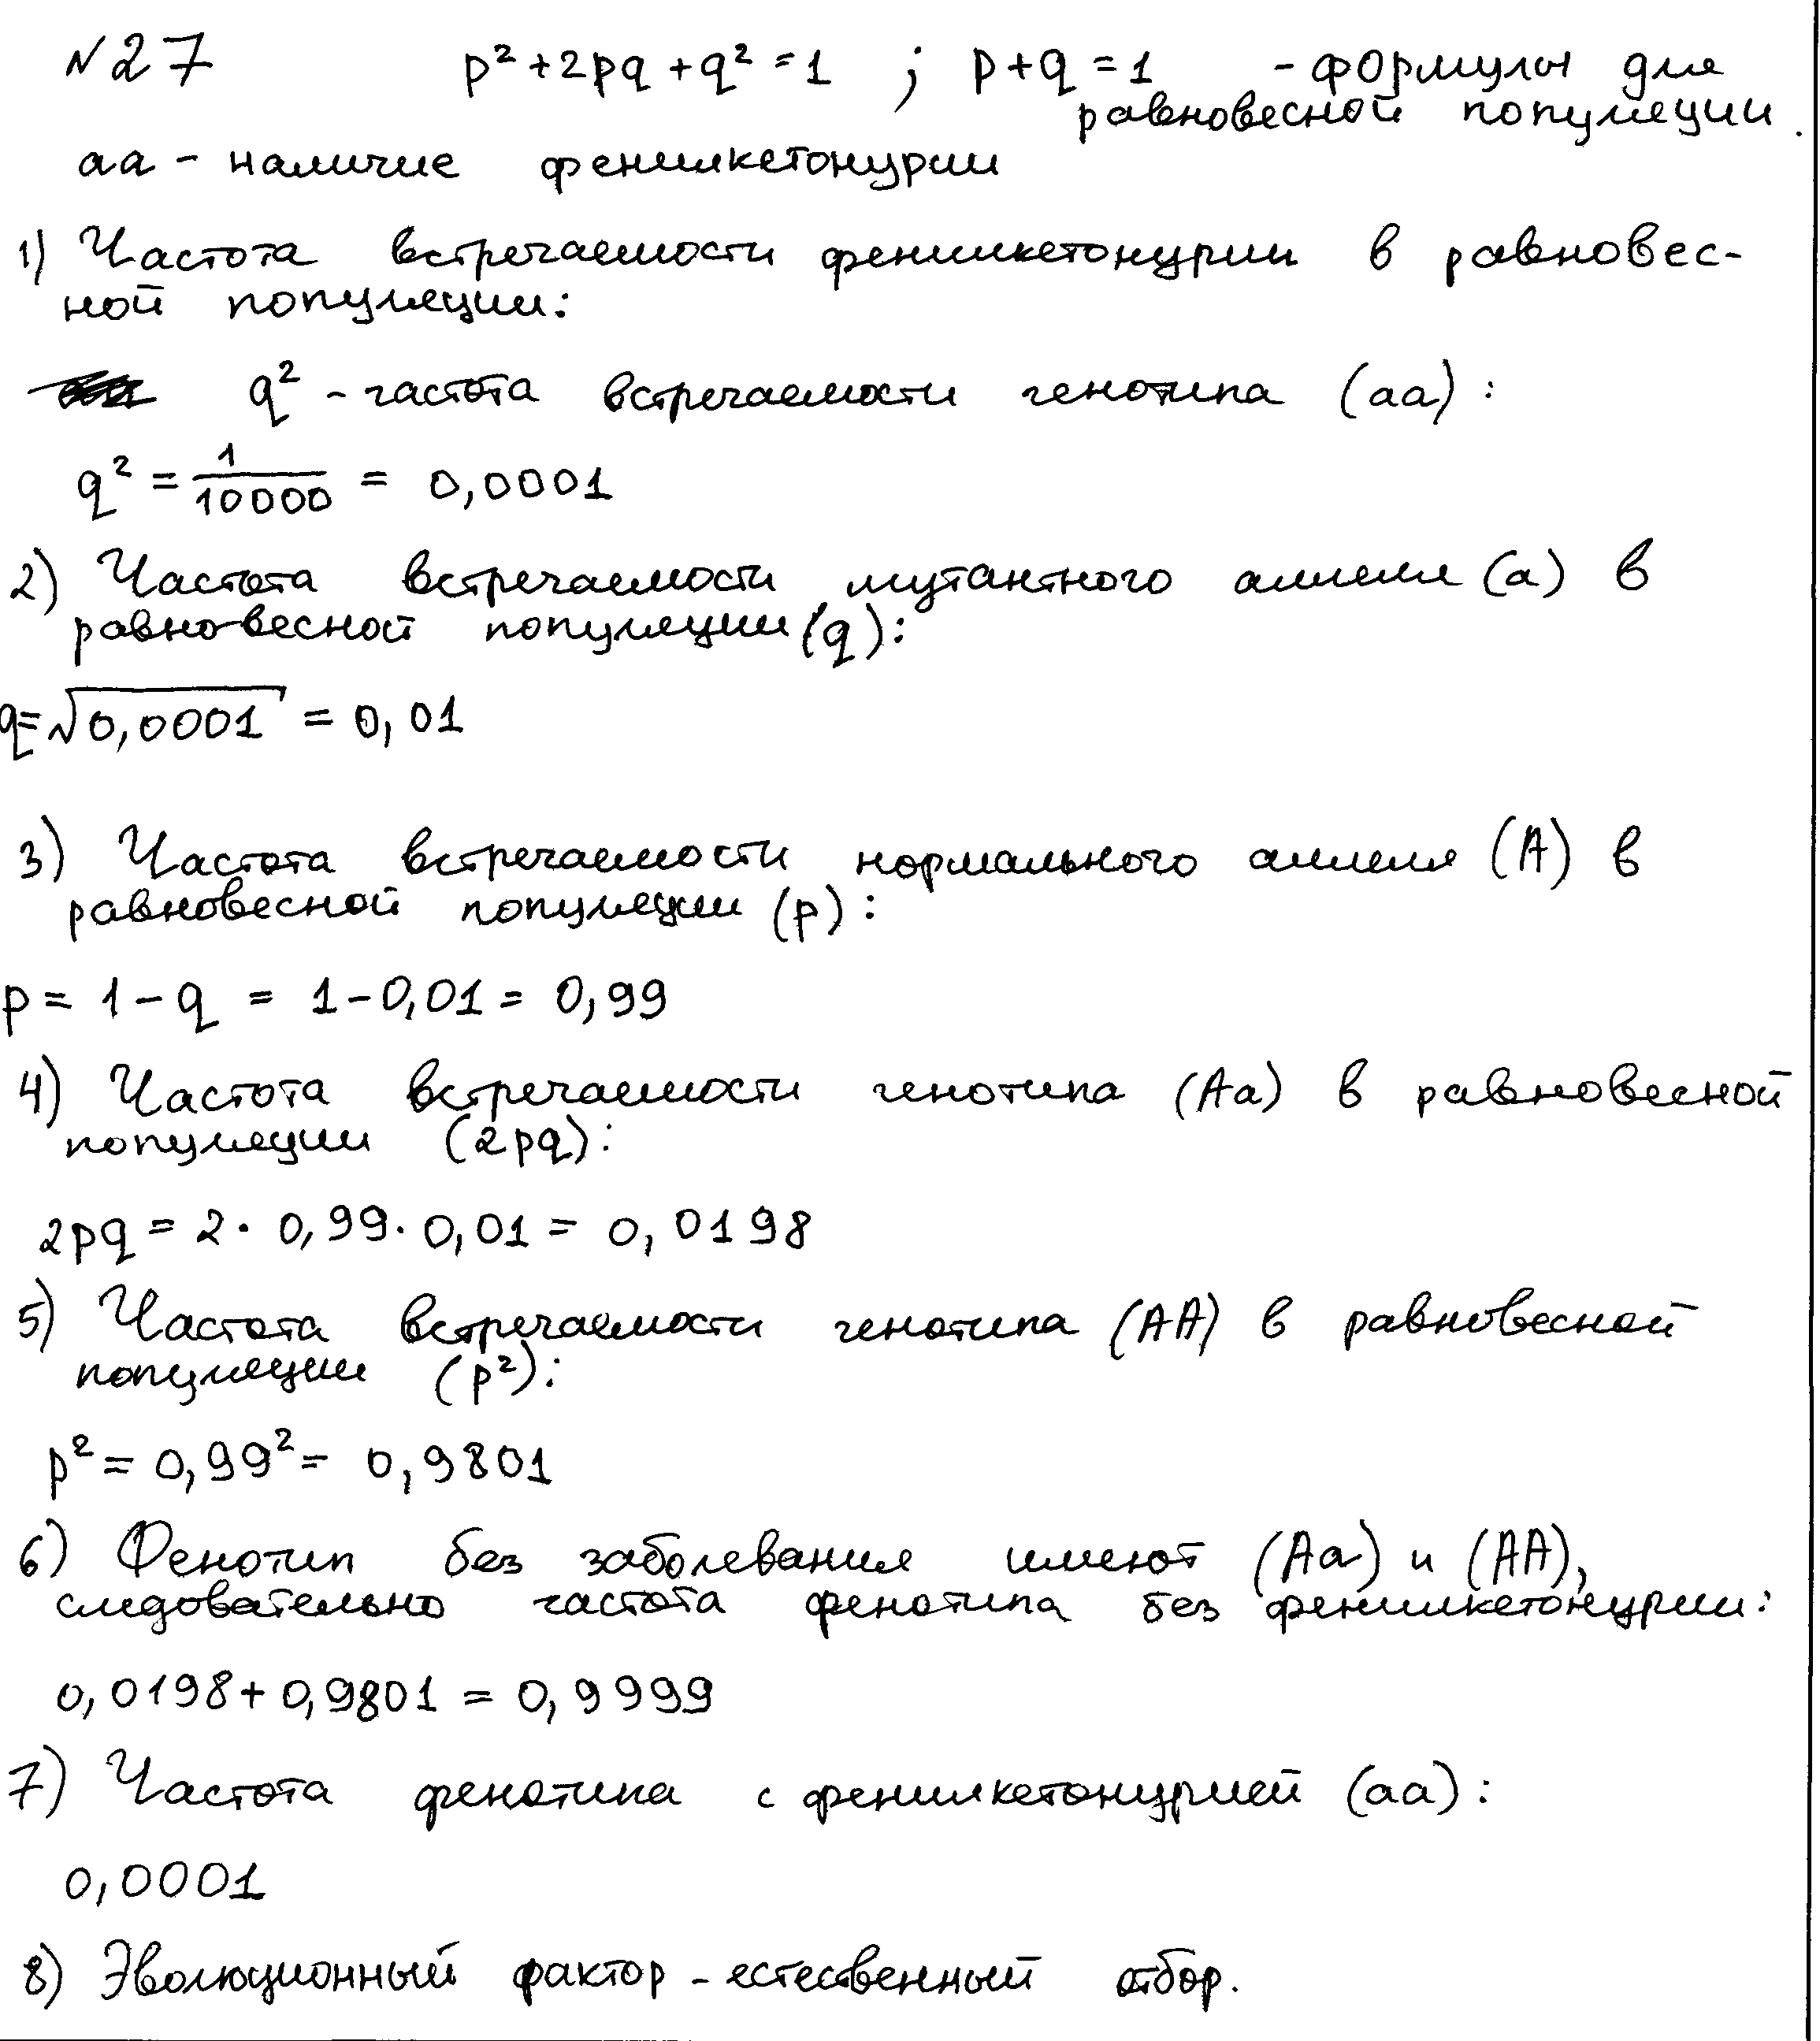 №27 p² + 2pq + q² = 1 ; p + q = 1 - формулы для
равновесной популяции.
аа - наличие фенилкетонурии
1) Частота встречаемости фенилкетонурии в равновес-
ной популяции:
q² - частота встречаемости генотипа (аа):
q² = 1/10000 = 0,0001
2) Частота встречаемости мутантного аллеля (а) в
равновесной популяции (q):
q = √0,0001 = 0,01
3) Частота встречаемости нормального аллеля (А) в
равновесной популяции (p):
p = 1 - q = 1 - 0,01 = 0,99
4) Частота встречаемости генотипа (Аа) в равновесной
популяции (2pq):
2pq = 2 · 0,99 · 0,01 = 0,0198
5) Частота встречаемости генотипа (АА) в равновесной
популяции (p²):
p² = 0,99² = 0,9801
6) Фенотип без заболевания имеют (Аа) и (АА),
следовательно частота фенотипа без фенилкетонурии:
0,0198 + 0,9801 = 0,9999
7) Частота фенотипа с фенилкетонурией (аа):
0,0001
8) Эволюционный фактор - естественный отбор.